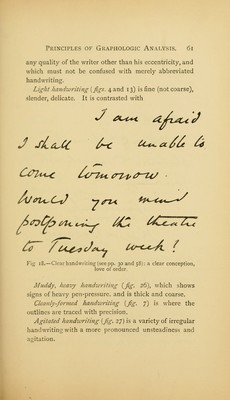 PRINCIPLES OF GRAPHOLOGIC ANALYSIS. 61
any quality of the writer other than his eccentricity, and
which must not be confused with merely abbreviated
handwriting.
Light handwriting (figs. 4 and 15) is fine (not coarse),
slender, delicate. It is contrasted with
I am afraid
I shall be unable to
come tomorrow.
Would you mind
postponing the theatre
to Tuesday week?
Fig 18.—Clear handwriting (see pp. 30 and 58): a clear conception,
love of order
Muddy, heavy handwriting (fig. 26), which shows
signs of heavy pen-pressure. and is thick and coarse.
Cleanly-formed handwriting (fig. 7) is where the
outlines are traced with precision.
Agitated handwriting (fig. 27) is a variety of irregular
handwriting with a more pronounced unsteadiness and
agitation.